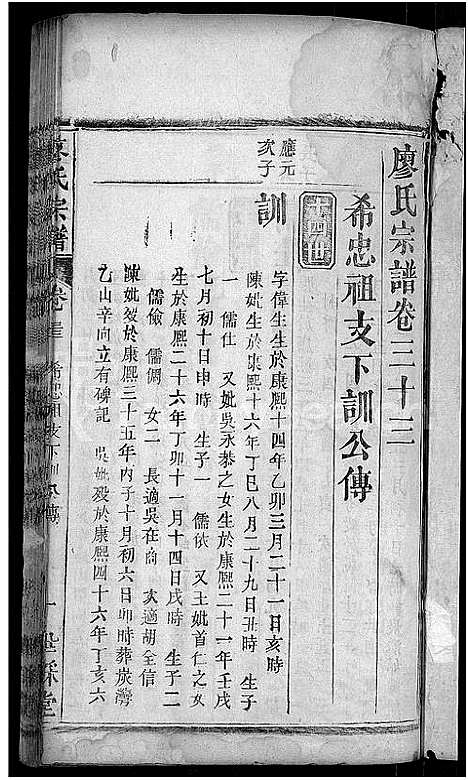 廖氏宗譜卷三十三
希忠祖支下訓公傳
十四世
應元
次子
訓
字偉生生於康熙十四年乙卯三月二十一日亥時
陳妣生於康熙十六年丁巳八月二十九日丑時 生子
一 儒仕 又妣吳永恭之女生於康熙二十一年壬戌
七月初十日申時 生子一 儒伙 又王妣首仁之女
生於康熙二十六年丁卯十一月十四日戌時 生子二
儒儉 儒倜 女二 長適吳在尚 次適胡全信
陳妣歿於康熙三十五年丙子十月初六日卯時葬炭灣
乙山辛向立有碑記 吳妣歿於康熙四十六年丁亥六
廖氏宗譜 卷三十三 希忠祖支下訓公傳 一 世綵堂